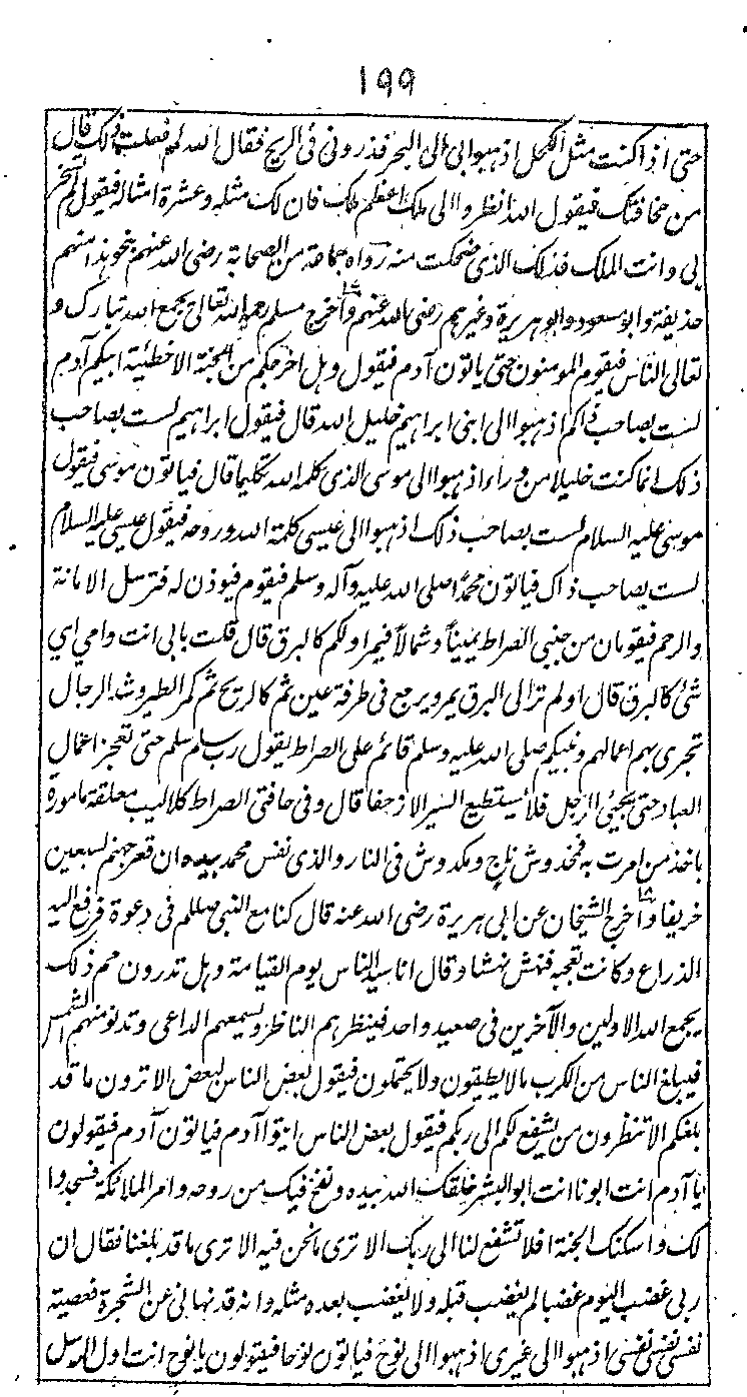 ۱۹۹
حتى اذا كنت مثل الكحل اذهبوا بى الى البحر فذرونى فى الريح فقال الله لم فعلت ذلك قال
من مخافتك فيقول الله انظروا الى ملك اعظم ملك فان لك مثله وعشرة امثاله فيقول لم تسخر
لى وانت الملك فذلك الذى ضحكت منه رواه جماعة من الصحابة رضى الله عنهم بنحو هذا منهم
حذيفة وابو مسعود وابو هريرة وغيرهم رضى الله عنهم واخرج مسلم رحمه الله تعالى يجمع الله تبارك و
تعالى الناس فيقوم المومنون حتى ياتون آدم فيقول وهل اخرجكم من الجنة الا خطئية ابيكم آدم
لست بصاحب ذاكم اذهبوا الى ابنى ابراهيم خليل الله قال فيقول ابراهيم لست بصاحب
ذلك انما كنت خليلا من وراء اذهبوا الى موسى الذى كلمه الله تكليما قال فياتون موسى فيقول
موسى عليه السلام لست بصاحب ذلك اذهبوا الى عيسى كلمة الله وروحه فيقول عيسى عليه السلام
لست بصاحب ذاك فياتون محمدا صلى الله عليه وآله وسلم فيقوم فيوذن له فترسل الامانة
والرحم فيقومان من جنبى الصراط يمينا وشمالا فيمر اولكم كالبرق قال قلت بابى انت وامى اى
شئ كالبرق قال اولم تر الى البرق يمر ويرجع فى طرفة عين ثم كالريح ثم كمر الطير وشد الرجال
تجرى بهم اعمالهم ونبيكم صلى الله عليه وسلم قائم على الصراط يقول رب سلم سلم حتى تعجز اعمال
العباد حتى يجيئ الرجل فلا يستطيع السير الا زحفا قال وفى حافتى الصراط كلاليب معلقة مامورة
باخذ من امرت به فمخدوش ناج ومكدوش فى النار والذى نفس محمد بيده ان قعر جهنم لسبعين
خريفا واخرج الشيخان عن ابى هريرة رضى الله عنه قال كنا مع النبى صللم فى دعوة فرفع اليه
الذراع وكانت تعجبه فنهش نهشا وقال انا سيد الناس يوم القيامة وهل تدرون مم ذلك
يجمع الله الاولين والآخرين فى صعيد واحد فينظرهم الناظر ويسمعهم الداعى وتدنو منهم الشمس
فيبلغ الناس من الكرب مالا يطيقون ولا يحتملون فيقول بعض الناس لبعض الا ترون ما قد
بلغكم الا تنظرون من يشفع لكم الى ربكم فيقول بعض الناس ايتوا آدم فياتون آدم فيقولون
يا آدم انت ابونا انت ابو البشر خلقك الله بيده ونفخ فيك من روحه وامر الملائكة فسجدوا
لك واسكنك الجنة افلا تشفع لنا الى ربك الا ترى ما نحن فيه الا ترى ما قد بلغنا فقال ان
ربى غضب اليوم غضبا لم يغضب قبله ولا يغضب بعده مثله وانه قد نهانى عن الشجرة فعصيته
نفسى نفسى نفسى اذهبوا الى غيرى اذهبوا الى نوح فياتون نوحا فيقولون يا نوح انت اول الرسل